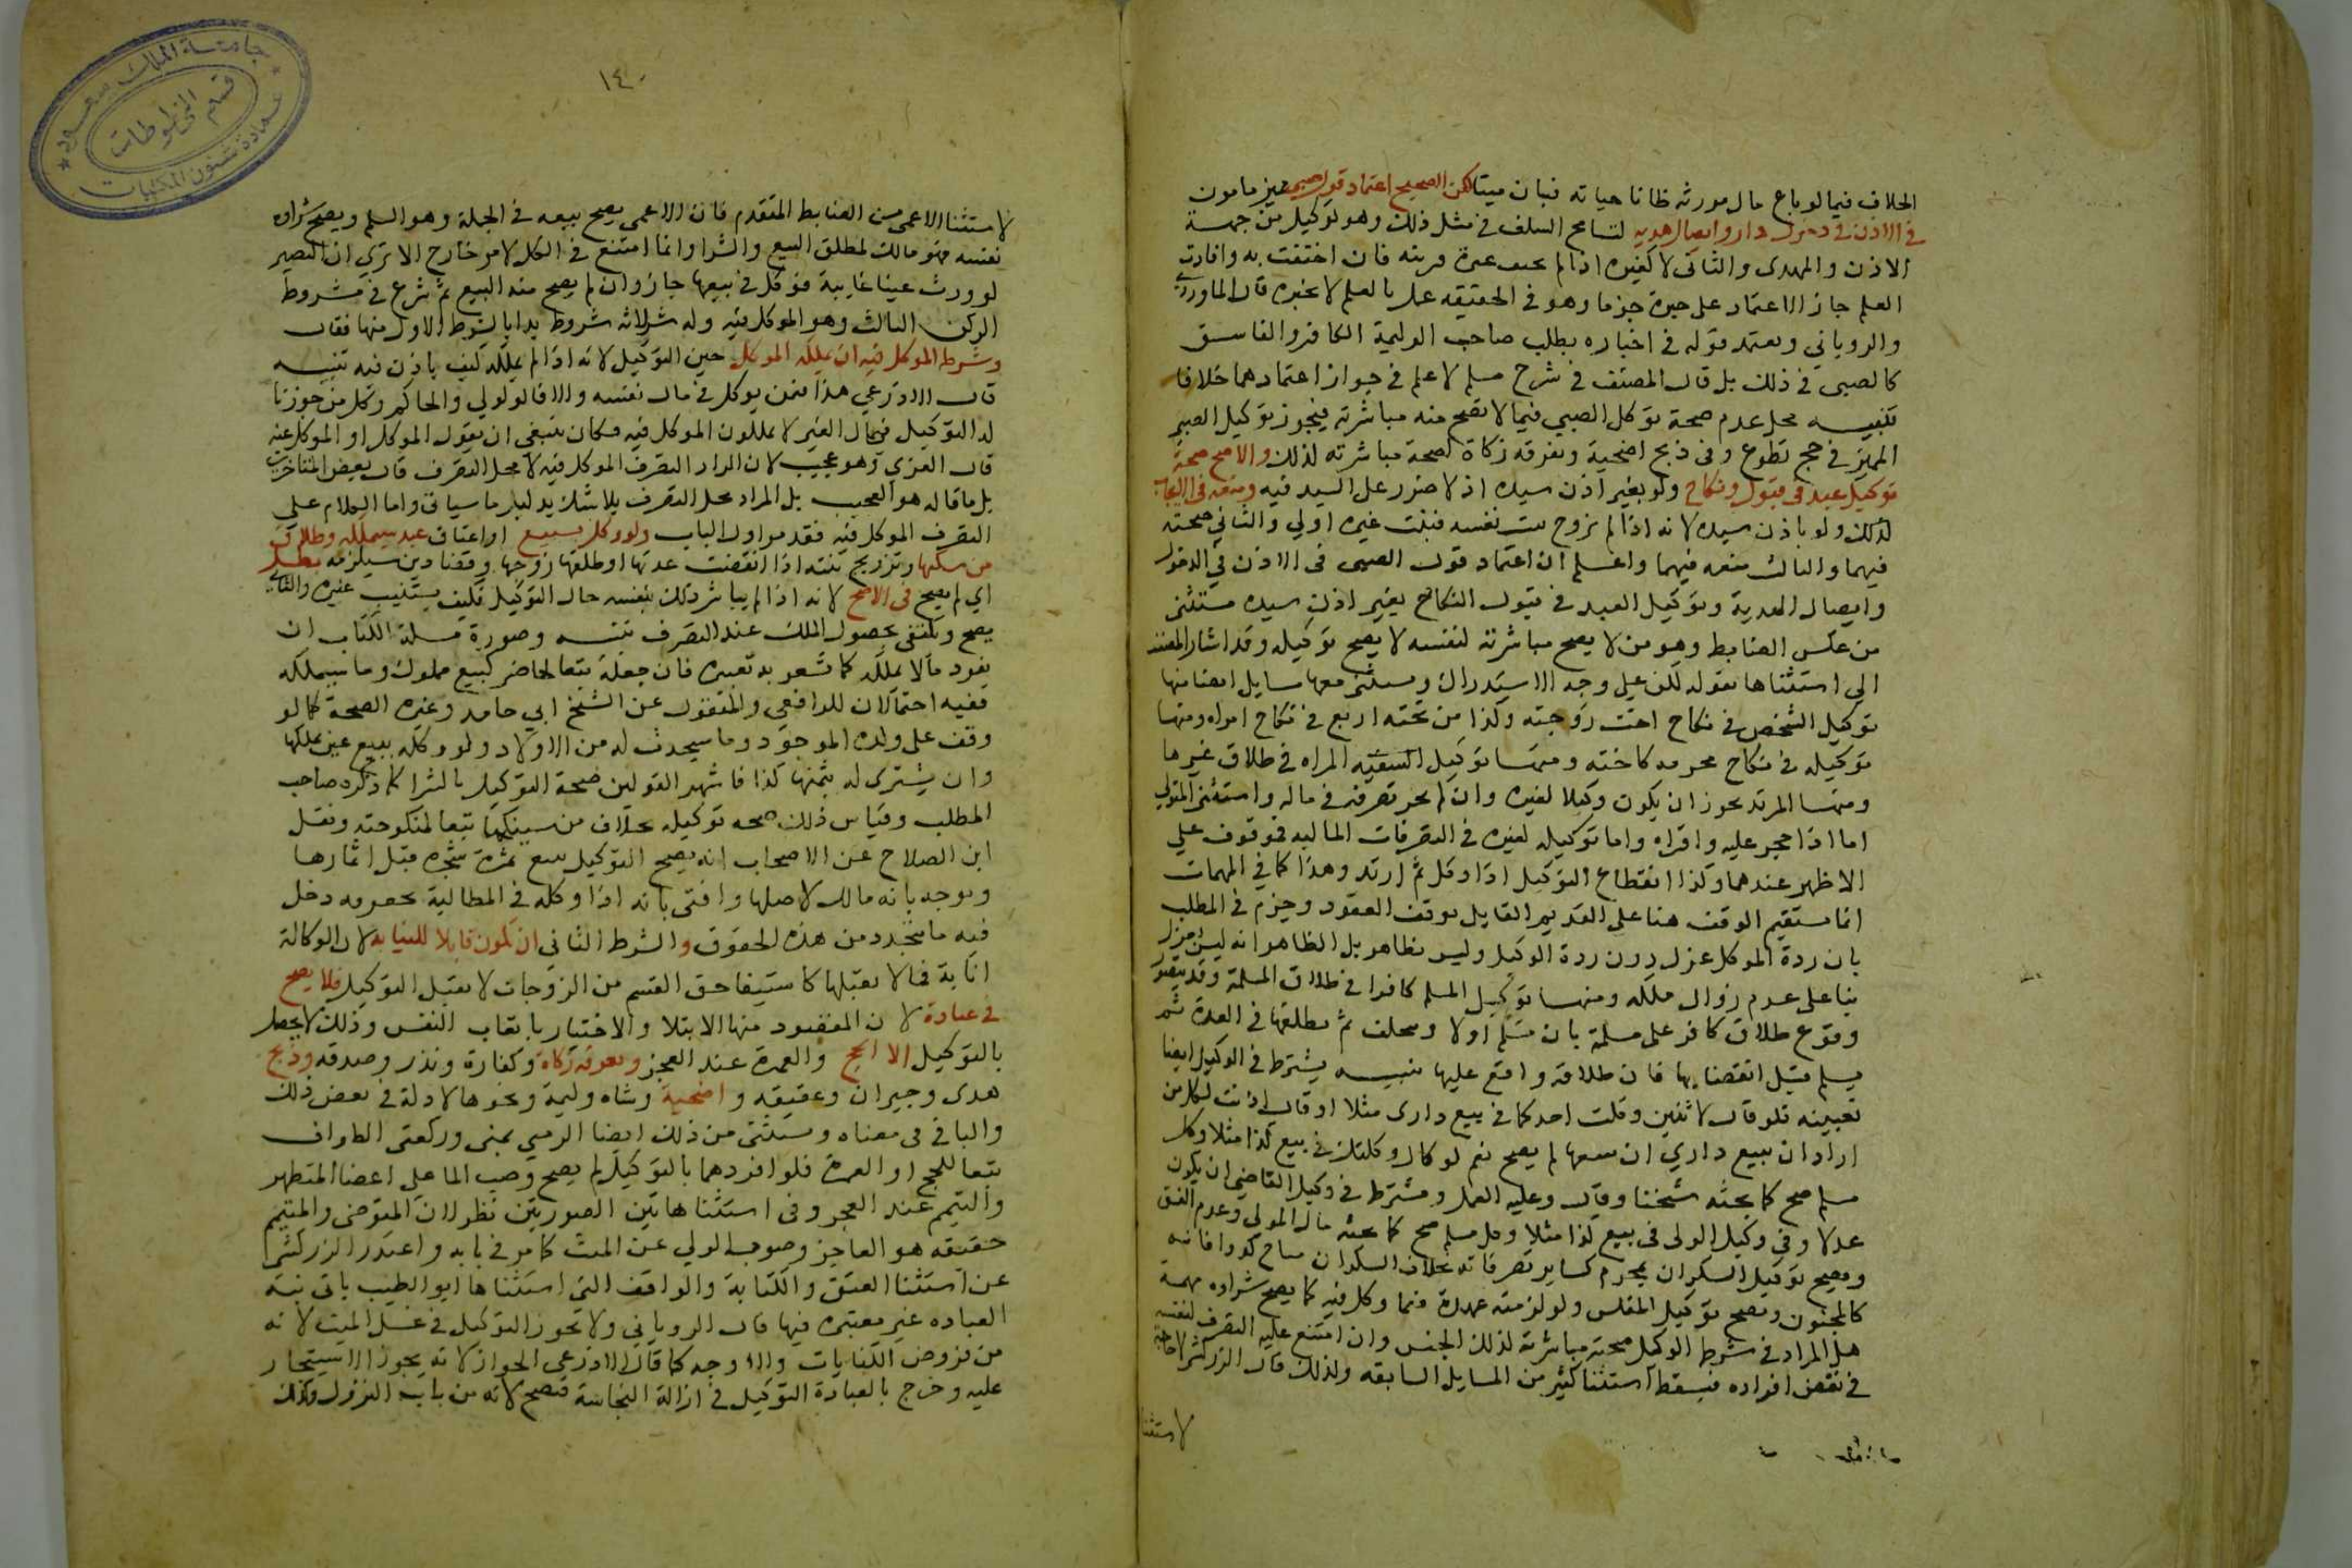 الخلاف فيما لو باع مال مورثه ظانا حياته فبان ميتا لكن الصحيح اعتماد قول صبي مميز مامون
في الاذن في دخول دار وايصال هدية لتسامح السلف في مثل ذلك وهو توكيل من جهة
الاذن والمهدي والثاني لا كغيره اذا لم يجرب عليه فان احتفت به وافادت
العلم جاز الاعتماد على خبره جزما وهو في الحقيقه عمل بالعلم لا بخبره قال الماوردي
والروياني ويعتمد قوله في اخباره بطلب صاحب الوليمة الكافر والفاسق
كالصبي في ذلك بل قال المصنف في شرح مسلم لا اعلم في جواز اعتمادهما خلافا
تنبيه محل عدم صحة توكل الصبي فيما لا تصح منه مباشرته فيجوز توكيل الصبي
المميز في حج تطوع وفي ذبح اضحية وتفرقه زكاة لصحة مباشرته لذلك والاصح صحة
توكيل عبد في قبول نكاح ولو بغير اذن سيده اذ لا ضرر على السيد فيه ومنعه في الايجاب
لذلك ولو باذن سيده لانه اذا لم يزوج بنت نفسه فبنت غيره اولي والثاني صحته
فيهما والثالث منعه فيهما واعلم ان اعتماد قول الصبي في الاذن في الدخول
وايصال الهدية وتوكيل العبد في قبول النكاح بغير اذن سيده مستثنى
من عكس الضابط وهو من لا يصح مباشرته لنفسه لا يصح توكيله وقد اشار المصنف
الي استثناها بقوله لكن علي وجه الاستدراك ويستثنى معها مسايل ايضا منها
توكيل الشخص في نكاح اخت زوجته وكذا من تحته اربع في نكاح امراه ومنها
توكيله في نكاح محرمه كاخته ومنها توكيل السفيه المراه في طلاق غيرها
ومنها المرتد يجوز ان يكون وكيلا لغيره وان لم يجز تصرفه في ماله واستثنى المتولي
اما اذا حجر عليه واقراه واما توكيله لغيره في التصرفات الماليه فموقوف علي
الاظهر عندهما وكذا انقطاع التوكيل اذا وكل ثم ارتد وهذا كما في المهمات
انما يستقيم الوقف هنا على القديم القايل بوقف العقود وجزم في المطلب
بان ردة الموكل عزل دون ردة الوكيل وليس بظاهر بل الظاهر انه ليس بعزل
بنا على عدم زوال ملكه ومنها توكيل المسلم كافرا في طلاق المسلمة وقد يتصور
وقوع طلاق كافر على مسلمة بان تسلم اولا ويتخلف ثم يطلقها في العدة ثم
يسلم قبل انقضايها فان طلاقه واقع عليها تنبيه يشترط في الوكيل ايضا
تعيينه فلو قال لاثنين وكلت احدكما في بيع داري مثلا او قال اذنت لكل من
اراد ان يبيع داري ان يبيعها لم يصح نعم لو قال وكلتك في بيع كذا مثلا وكل
مسلم صح كما بحثه شيخنا وقال وعليه العمل ويشترط في وكيل القاضي ان يكون
عدلا وفي وكيل الولي في بيع مال المولي وعدم الفسق
ويصح توكيل السكران بمحرم كساير تصرفاته بخلاف السكران بمباح كدوا فانه
كالمجنون ويصح توكيل المفلس ولو لزمته عهدة فيما وكل فيه كما يصح شراوه
هل المراد في شرط الوكيل صحة مباشرته لذلك الجنس وان امتنع عليه التصرف لنفسه
في بعض افراده فيسقط استثنا كثير من المسايل السابقه ولذلك قال الزركشي لا حاجة
لاستثنا
١٤٠
لاستثنا الاعمى من الضابط المتقدم فان الاعمى يصح بيعه في الجملة وهو السلم ويصح شراوه
نفسه فهو مالك لمطلق البيع والشرا وانما امتنع في الكل لامر خارج الا تري ان البصير
لو ورث عينا غايبة فوكل في بيعها جاز وان لم يصح منه البيع ثم شرع في شروط
الركن الثالث وهو الموكل فيه وله ثلاثة شروط بدا بالشرط الاول منها فقال
وشرط الموكل فيه ان يملكه الموكل حين التوكيل لانه اذا لم يملكه كيف ياذن فيه تنبيه
قال الاذرعي هذا فيمن يوكل في مال نفسه والا فالولي والحاكم وكل من جوزنا
له التوكيل في مال الغير لا يملكون الموكل فيه فكان ينبغي ان يقول الموكل او الموكل عنه
قال الغزي وهو عجيب لان المراد التصرف الموكل فيه لا محل التصرف قال بعض المتاخرين
بل ما قاله هو العجيب بل المراد محل التصرف بلا شك بدليل ما سياتي واما الكلام على
التصرف الموكل فيه فقد مر اول الباب ولو وكل ببيع او اعتاق عبد سيملكه وطلاق
من سينكحها وتزويج بنته اذا انقضت عدتها او طلقها زوجها وقضا دين سيلزمه بطل
اي لم يصح في الاصح لانه اذا لم يباشر ذلك بنفسه حال التوكيل فكيف يستنيب غيره والثاني
يصح ويكتفي بحصول الملك عند التصرف تنبيه وصورة مسلة الكتاب ان
يفرد ما لا يملكه كما تشعر به تعبيره فان جعله تبعا لحاضر كبيع مملوك وما سيملكه
ففيه احتمالان للرافعي والمنقول عن الشيخ ابي حامد وغيره الصحة كما لو
وقف على ولده الموجود وما سيحدث له من الاولاد ولو وكله ببيع عين يملكها
وان يشتري له بثمنها كذا فاشهر القولين صحة التوكيل بالشرا كما ذكره صاحب
المطلب وقياس ذلك صحه توكيله بطلاق من سينكحها تبعا لمنكوحته ونقل
ابن الصلاح عن الاصحاب انه يصح التوكيل ببيع ثمرة شجره قبل اثمارها
ويوجه بانه مالك لاصلها وافتى بانه اذا وكله في المطالبة بحقوقه دخل
فيه ما يتجدد من هذه الحقوق والشرط الثاني ان يكون قابلا للنيابه لان الوكالة
انابة فما لا يقبلها كاستيفا حق القسم من الزوجات لا يقبل التوكيل فلا يصح
في عبادة لان المقصود منها الابتلا والاختبار باتعاب النفس وذلك لا يحصل
بالتوكيل الا الحج والعمرة عند العجز وتفرقه زكاة وكفارة ونذر وصدقه وذبح
هدي وجبران وعقيقه واضحية وشاه وليمة ونحوها لادلة في بعض ذلك
والباقي في معناه ويستثنى من ذلك ايضا الرمي بمنى وركعتي الطواف
تبعا للحج او العمرة فلو افردهما بالتوكيل لم يصح وصب الما على اعضا المتطهر
والتيمم عند العجز وفي استثنا هاتين الصورتين نظر لان المتوضي والمتيمم
حقيقه هو العاجز وصوم الولي عن الميت كما مر في بابه واعتذر الزركشي
عن استثنا العتق والكتابة والوقف التي استثناها ابو الطيب بان نية
العباده غير معتبرة فيها قال الروياني ولا يجوز التوكيل في غسل الميت لانه
من فروض الكفايات والاوجه كما قال الاذرعي الجواز لانه يجوز الاستيجار
عليه وخرج بالعبادة التوكيل في ازالة النجاسة فيصح لانه من باب التروك وكذلك
جامعة الملك سعود
قسم المخطوطات
عمادة شئون المكتبات